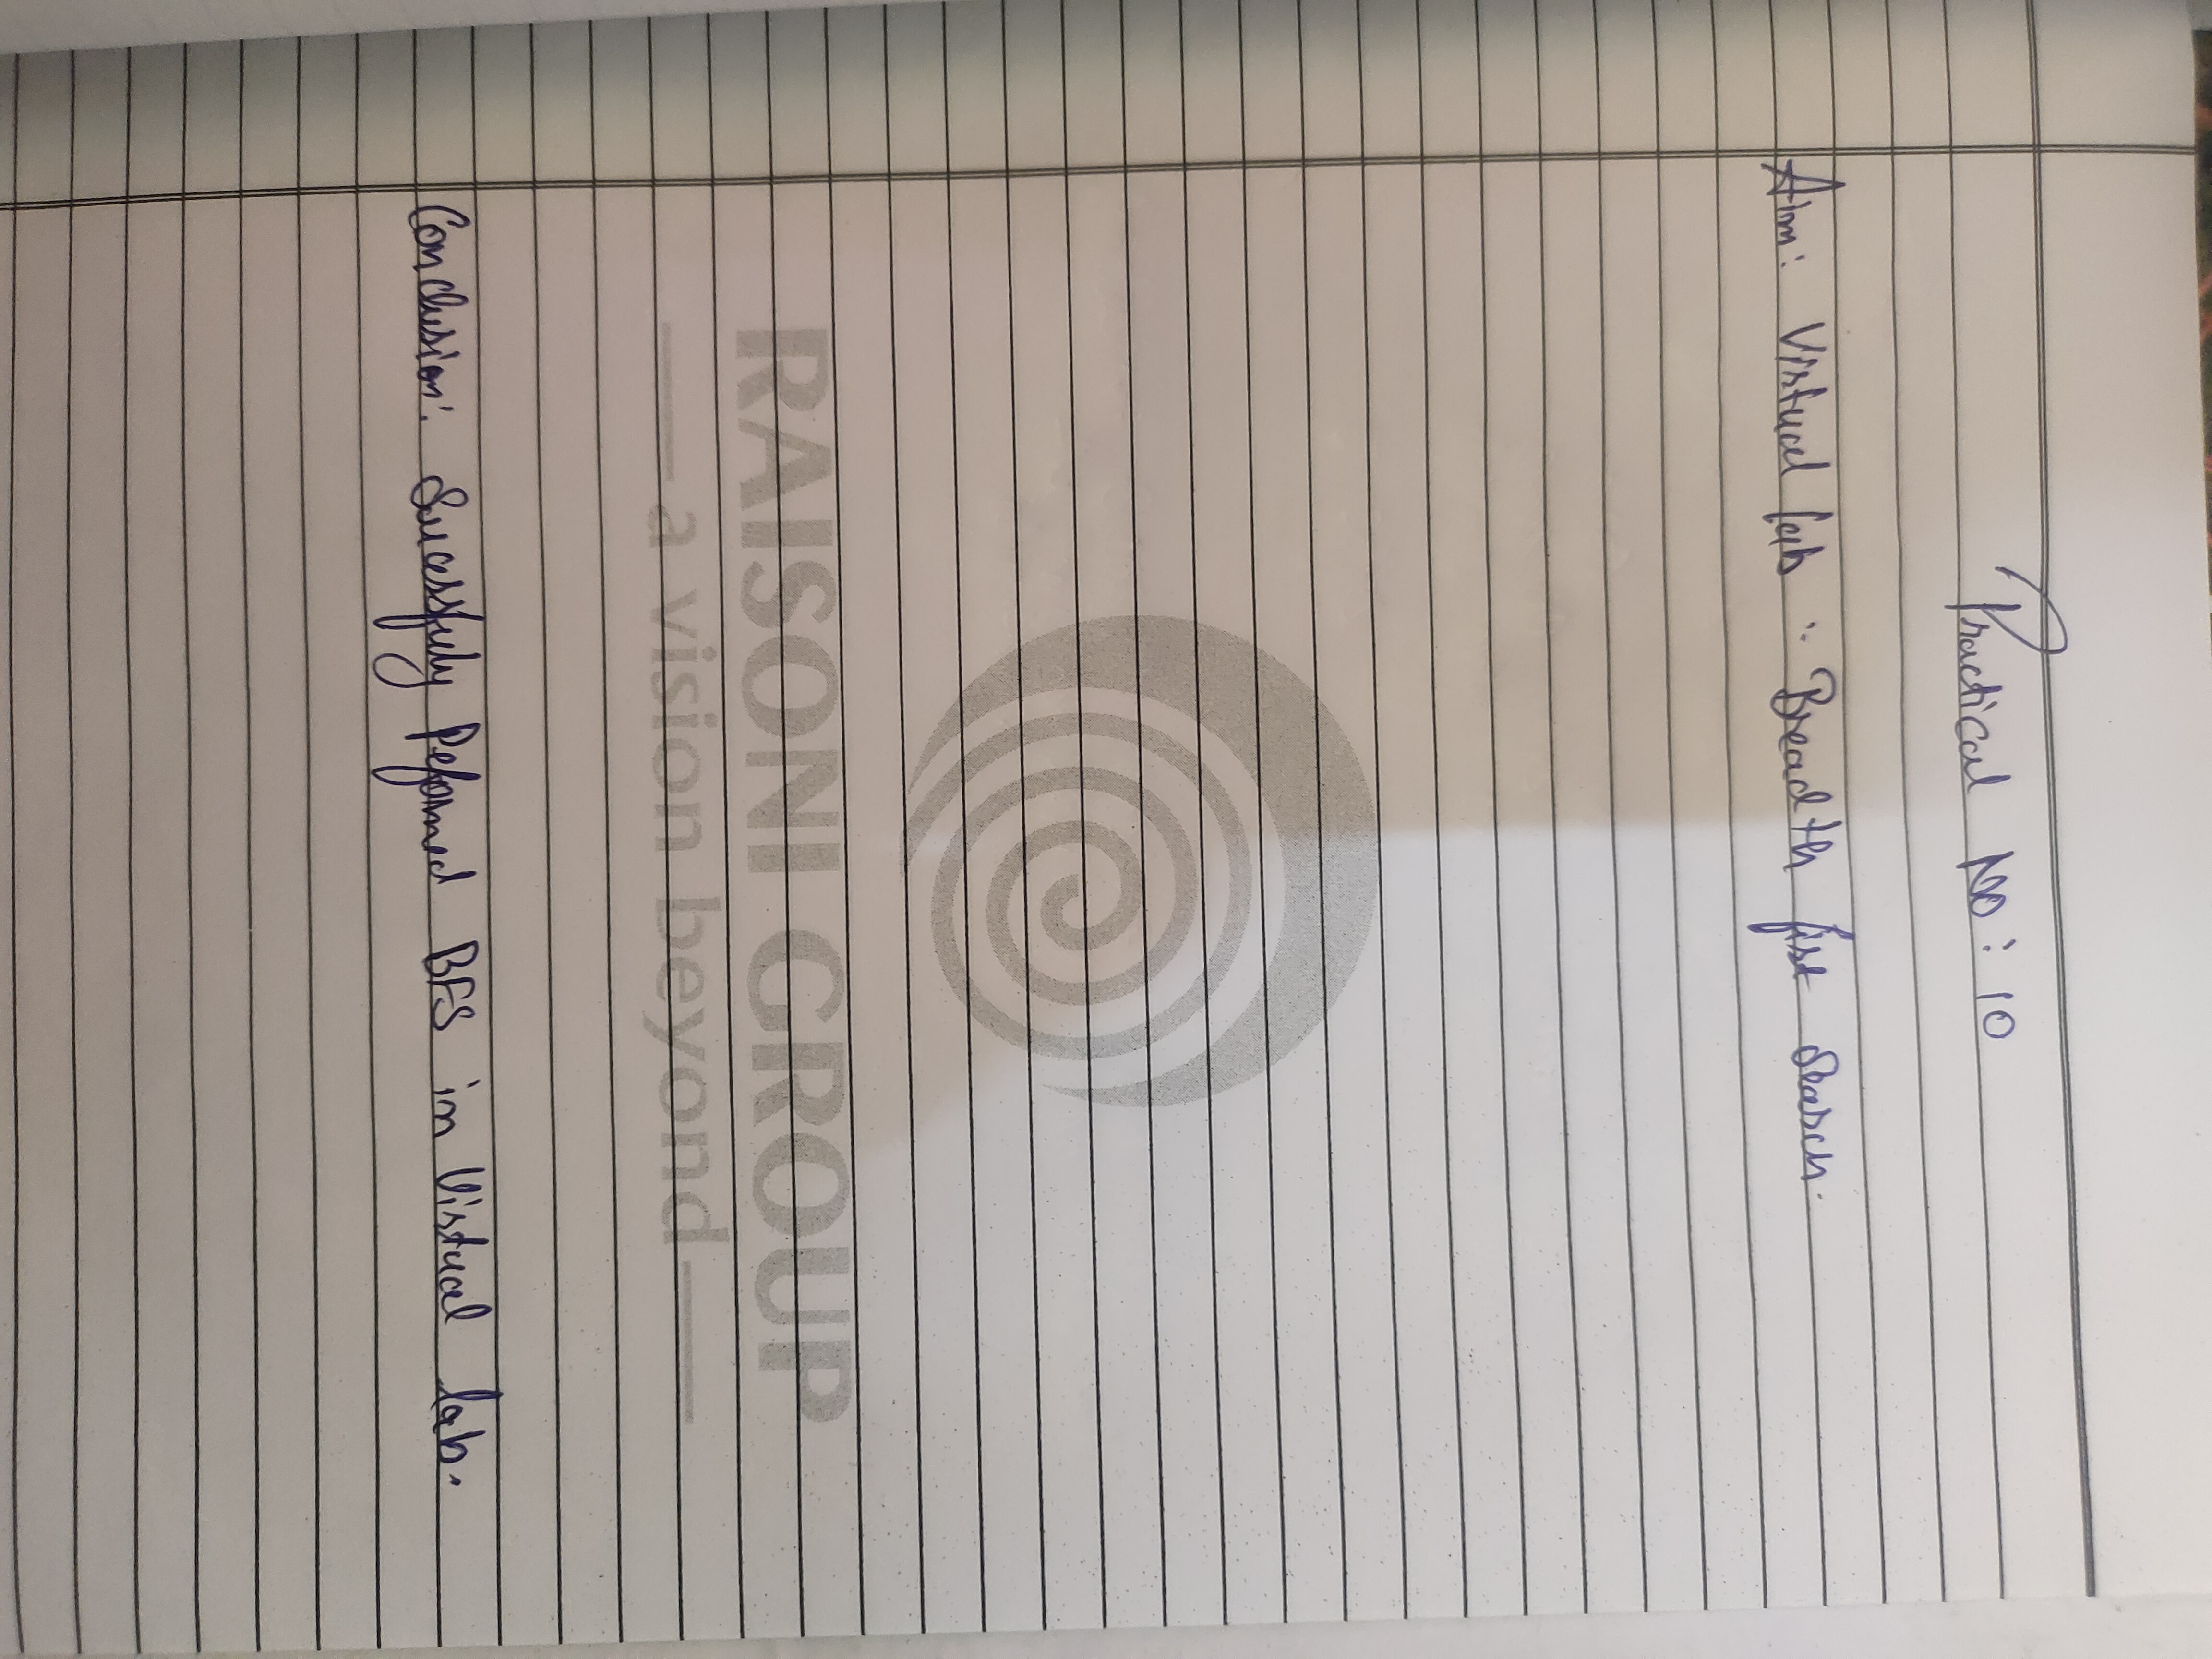 Practical No: 10
Aim: Virtual lab : Breadth fist Search.
RAISONI GROUP
a vision beyond
Conclusion: Sucessfuly Peformed BFS in Virtual lab.